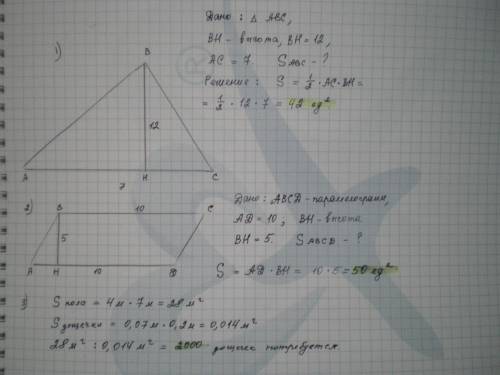 1)
Дано: △ ABC,
BH - высота, BH = 12,
AC = 7. S ABC - ?
Решение: S = 1/2 · AC · BH =
= 1/2 · 12 · 7 = 42 ед²
B
12
A H C
7
2)
B 10 C
5
A H 10 D
Дано: ABCD - параллелограмм,
AD = 10; BH - высота
BH = 5. S ABCD - ?
S = AD · BH = 10 · 5 = 50 ед²
3) S пола = 4м · 7м = 28 м²
S дощечки = 0,07м · 0,2м = 0,014 м²
28 м² : 0,014 м² = 2000 дощечек потребуется